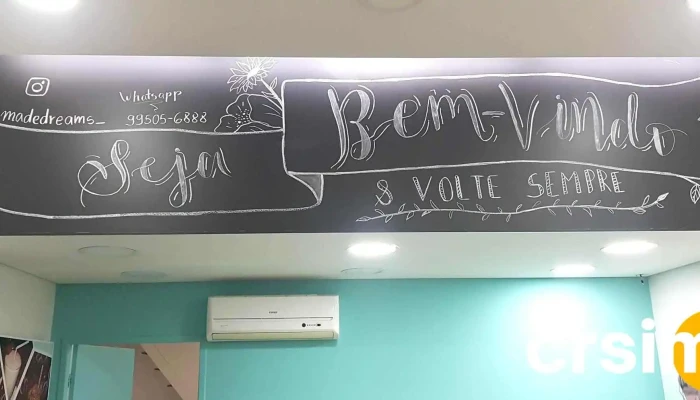 Whatsapp
madedreams_ 99505-6888
Seja
Bem-Vindo
& VOLTE SEMPRE
crsim